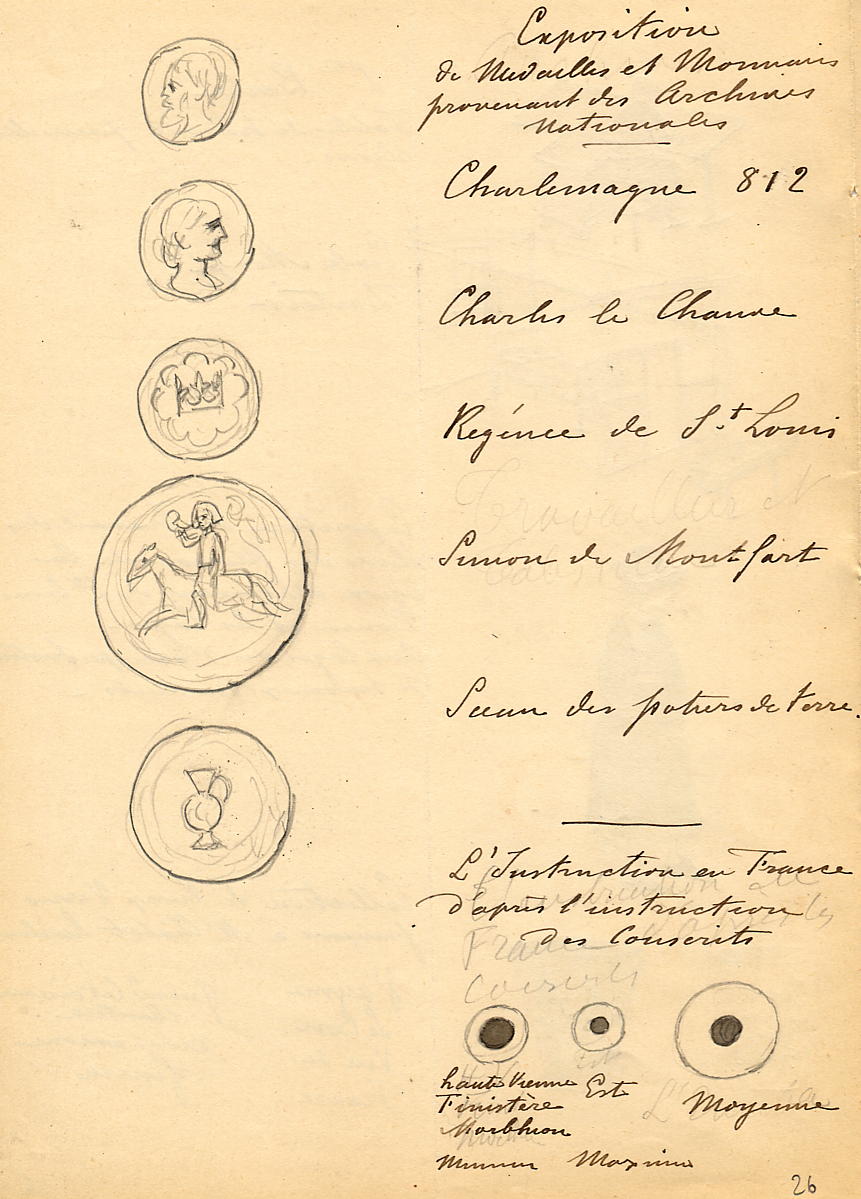 Exposition
de Medailles et Monnaies
provenant des Archives
Nationales
Charlemagne 812
Charles le Chauve
Régence de S.t Louis
Simon de Montfort
Sceau des potiers de terre.
L'Instruction en France
d'après l'instruction
des Conscrits
haute Vienne
Finistère
Morbihan
Est
Moyenne
Minimum Maximum
26